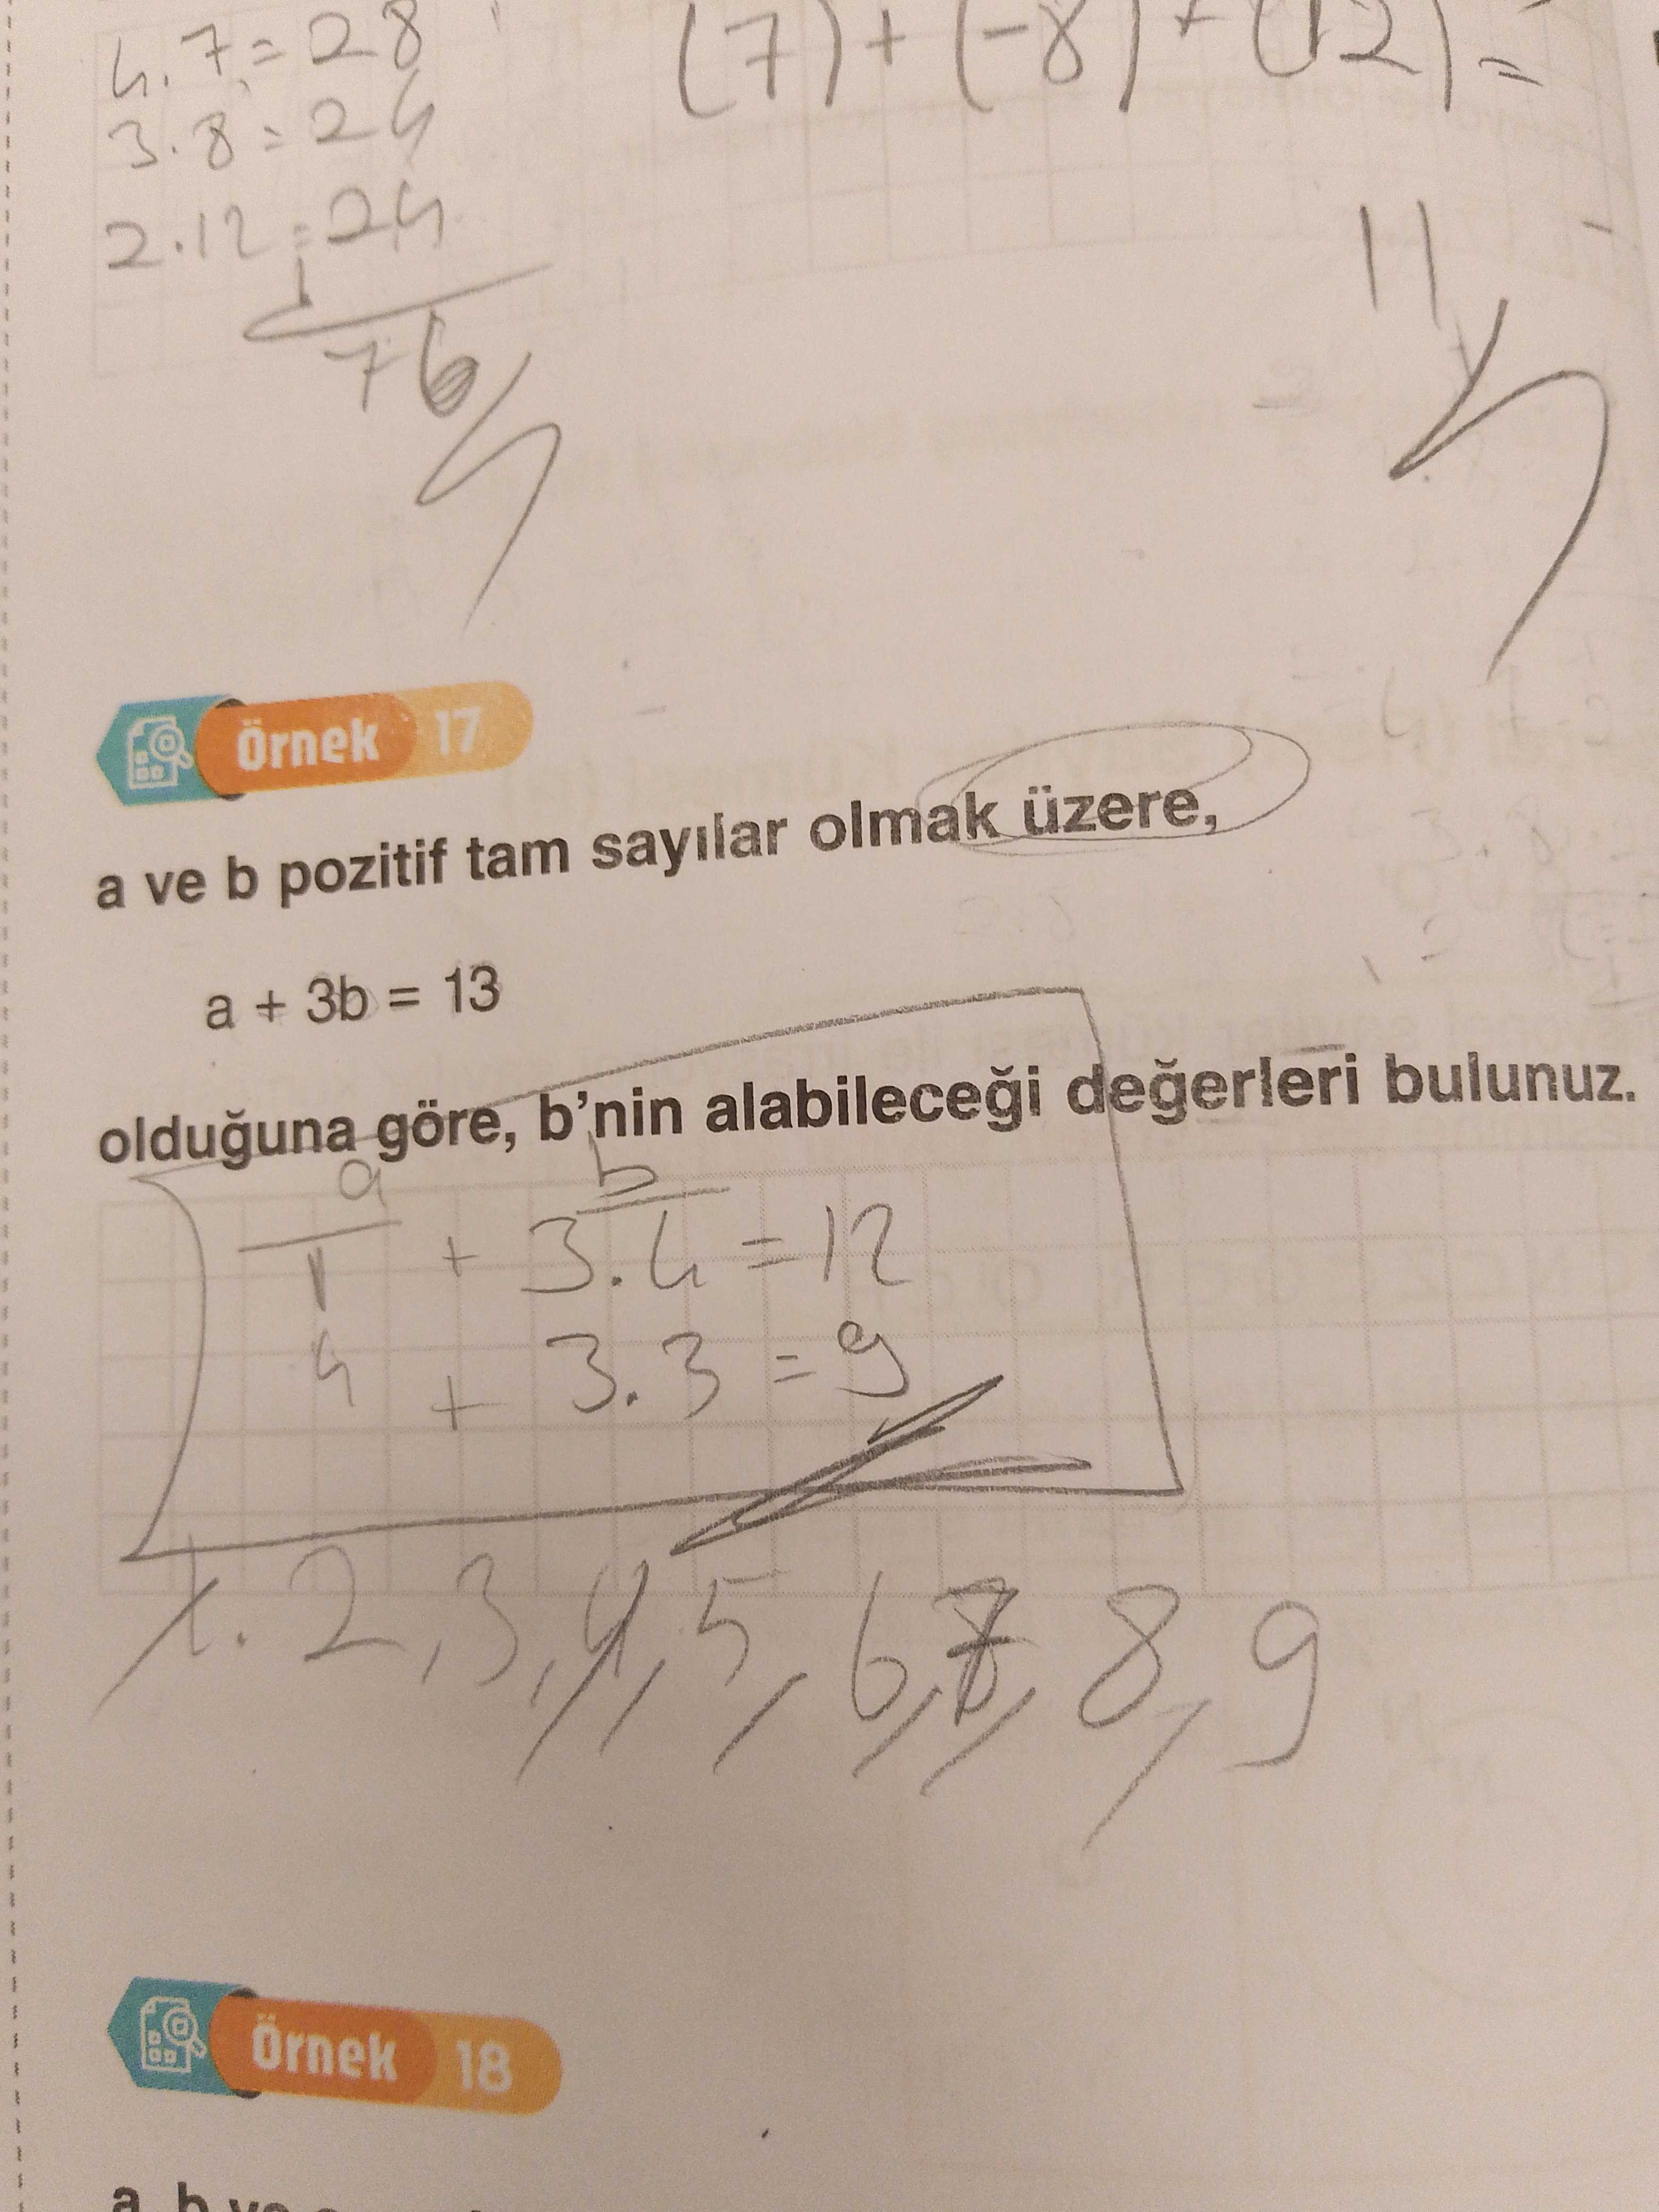 4.7=28
(7)+(-8)+(12)=
3.8=24
2.12=24
76
11
Örnek 17
a ve b pozitif tam sayılar olmak üzere,
a + 3b = 13
olduğuna göre, b'nin alabileceği değerleri bulunuz.
a b
1 + 3.4=12
4 + 3.3=9
1.2,3,4,5,6,7,8,9
Örnek 18